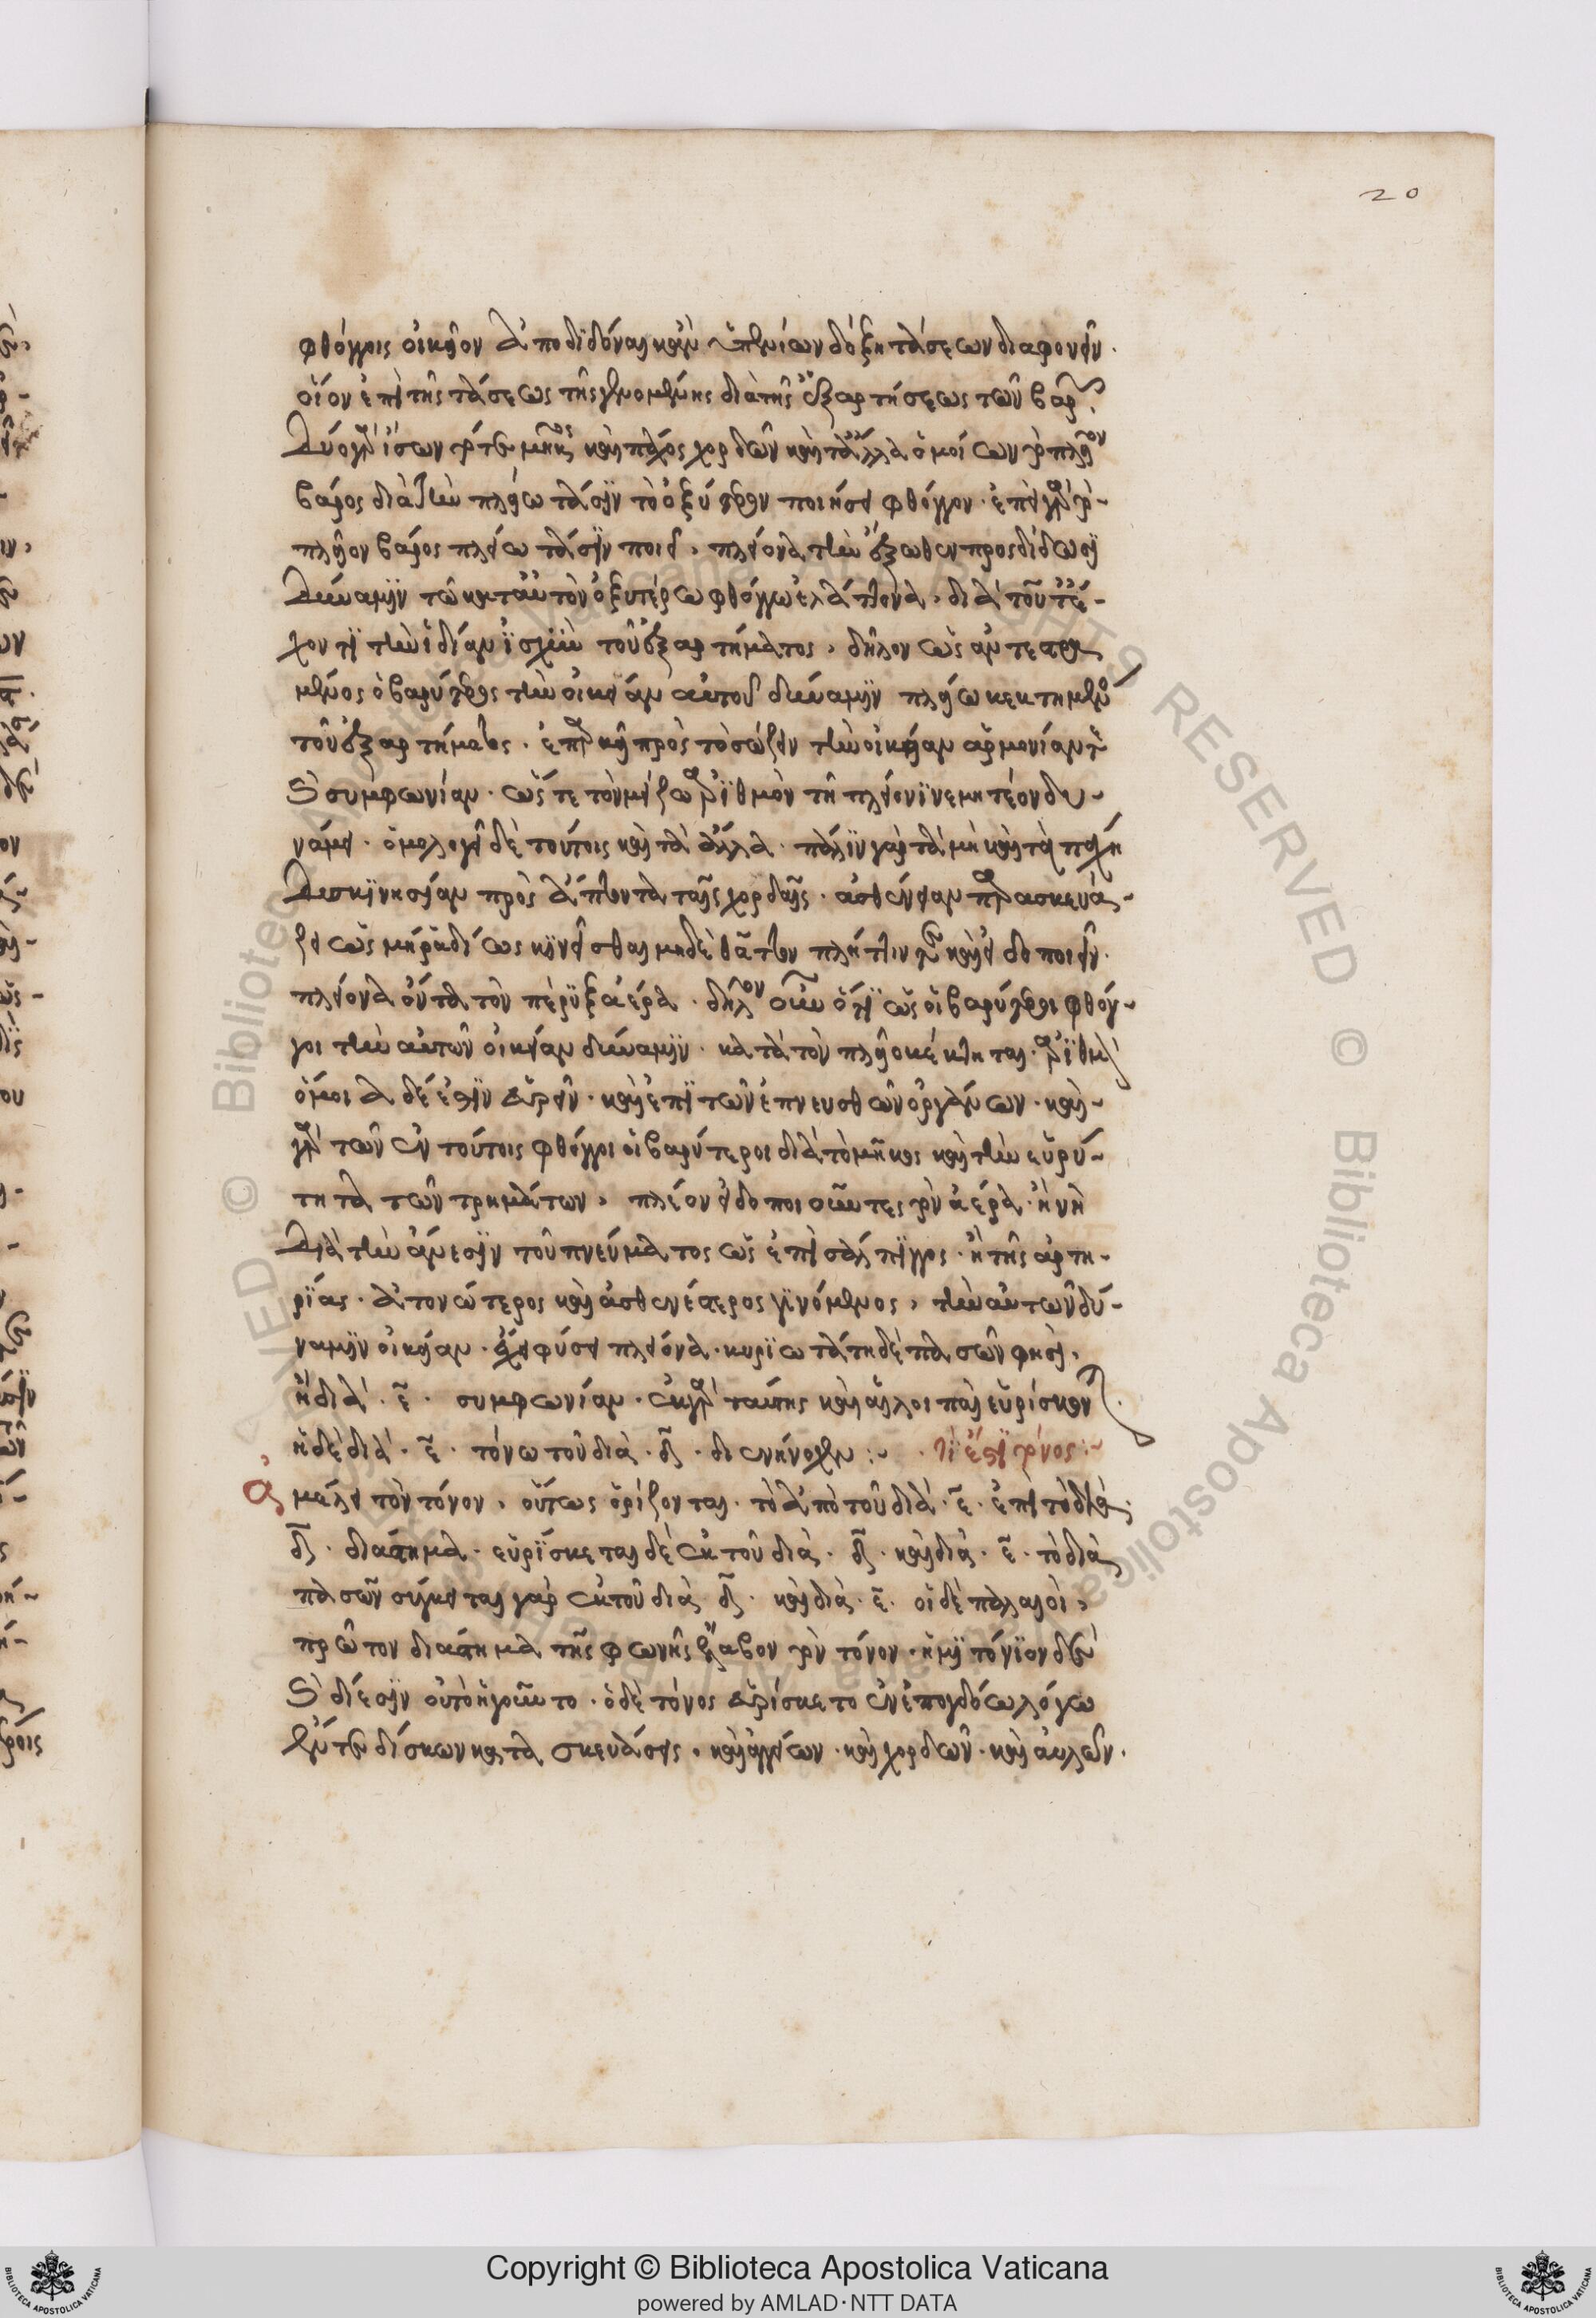 20
φθόγγοις οἰκεῖον ἀποδιδόναι κἂν ἐπ' ἐνίων δόξη τάσεων διαφωνεῖν.
οἷον ἐπὶ τῆς τάσεως τῆς γινομένης διὰ τῆς ἐξαρτήσεως τῶν βαρῶν.
δύο γὰρ ἴσων τό τε μῆκος καὶ πάχος χορδῶν καὶ τἄλλα ὁμοίων τὸ πλεῖον
βάρος διὰ τὴν πλείω τάσιν τὸ ὀξύτερον ποιήσει φθόγγον. ἐπεὶ γὰρ τὸ
πλεῖον βάρος πλείω τάσιν ποιεῖ, πλείονα τὴν ἔξωθεν προσδίδωσι
δύναμιν τῶ κατ' αὐτὸν ὀξυτέρω φθόγγω ἐλάττονα, διὰ τοῦτ' ἔ-
χοντι τὴν ἰδίαν ἰσχὺν τοῦ ἐξαρτήματος, δῆλον ὡς ἀντεστραμ
μένος ὁ βαρύτερος τὴν οἰκείαν αὐτοῦ δύναμιν πλείω κεκτημένος
τοῦ ἐξαρτήματος. ἐπαρκεῖ πρὸς τὸ σώζειν τὴν οἰκείαν ἁρμονίαν τὲ
καὶ συμφωνίαν. ὥστε τὸν μείζω ἀριθμὸν τῆ πλείονι νεμητέον δυ-
νάμει. ὁμολογεῖ δὲ τούτοις καὶ τὰ ἄλλα. πάλιν γὰρ τὰ μήκη καὶ τὰ πάχη
δυσκινησίαν πρὸς ἅπτοντα ταῖς χορδαῖς. ἀσθένειαν παρασκευά-
ζει ὡς μὴ ῥαδίως κινεῖσθαι μηδὲ θᾶττον πλήττειν τὲ καὶ εἰδοποιεῖν.
πλείονα ὄντα τὸν πέριξ ἀέρα. δῆλον οὖν ὅτι ὡς οἱ βαρύτεροι φθόγ-
γοι τὴν αὐτῶν οἰκείαν δύναμιν. κατὰ τὸν πλείω κέκτηνται ἀριθμὸν
ὅμοια δέ ἐστιν εὑρεῖν. καὶ ἐπὶ τῶν ἐπνευσθῶν ὀργάνων. καὶ
γὰρ τῶν ἐν τούτοις φθόγγοι οἱ βαρύτεροι διὰ τὸ μῆκος καὶ τὴν εὐρύ-
τητα τῶν τρημάτων, πλέον εἰδοποιοῦντες τὸν ἀέρα. ἢ νὴ
Δία τὴν ἄνεσιν τοῦ πνεύματος ὡς ἐπὶ σάλπιγγος. ἢ τῆς ἀρτη-
ρίας. ἀτονώτερος καὶ ἀσθενέστερος γινόμενος, τὴν αὐτῶν δύ-
ναμιν οἰκείαν. ἔχει φύσει πλείονα. κυριωτάτη δὲ πασῶν φησὶ.
ἡ διὰ. ε̄. συμφωνίαν. ἐκ γὰρ ταύτης καὶ ἄλλοι πᾶσι εὑρίσκειν
ἡ δὲ διὰ. ε̄. τόνω τοῦ διὰ. δ̄. διενήνοχεν :~ . τί ἐστι τόνος :~
ἀμέλει τὸν τόνον, οὕτως ὁρίζονται. τὸ ἀπὸ τοῦ διὰ. ε̄. ἐπὶ τὸ διὰ.
δ̄. διάστημα. εὑρίσκεται δὲ ἐκ τοῦ διὰ. δ̄. καὶ διὰ. ε̄. τὸ διὰ
πασῶν σύγκειται γὰρ ἐκ τοῦ διὰ δ̄. καὶ διὰ. ε̄. οἱ δὲ παλαιοὶ,
πρῶτον διάστημα τῆς φωνῆς ἔλαβον τὸν τόνον. ἡμιτόνιον δὲ
καὶ δίεσιν οὐτὸ ἡγοῦντο. ὁ δὲ τόνος εὑρίσκετο ἐν ἐπογδόω λόγω
ἔν τε δίσκων κατασκευάσεις. καὶ ἀγγείων. καὶ χορδῶν. καὶ αὐλῶν.
Copyright © Biblioteca Apostolica Vaticana
powered by AMLAD·NTT DATA